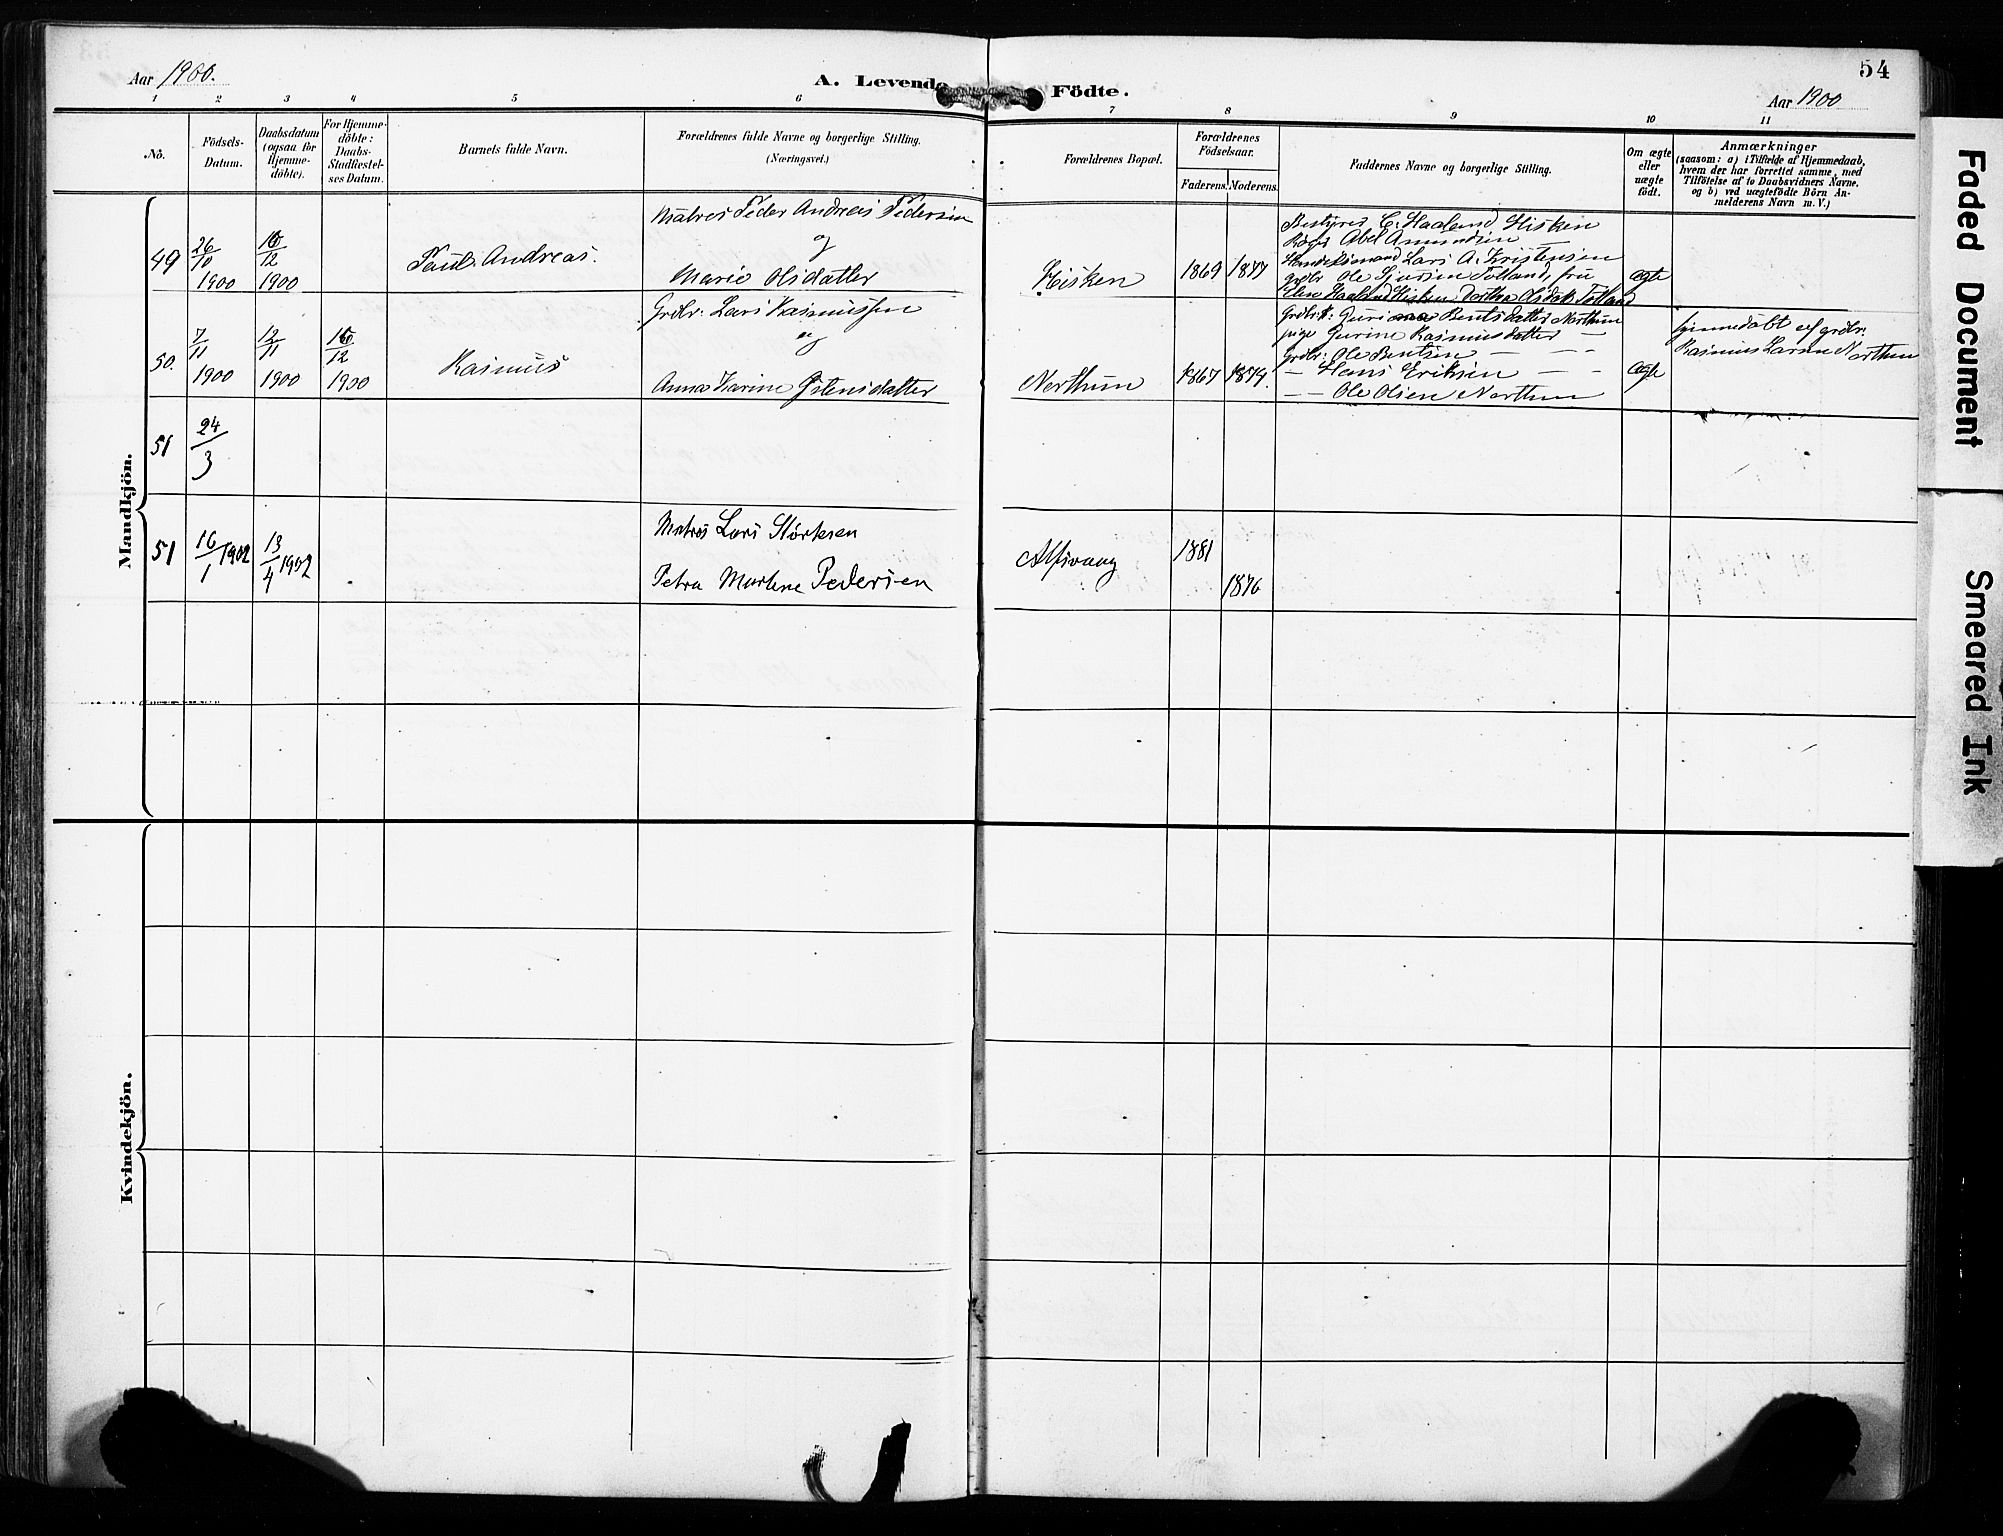 Aar 1900.
A. Levende Födte.
54
Aar 1900
1 2 3 4 5 6 7 8 9 10 11
No.
Födsels-Datum.
Daabsdatum (ogsaa for Hjemme-döbte).
For Hjemme-döbte: Daabs-Stadfæstel-ses Datum.
Barnets fulde Navn.
Forældrenes fulde Navne og borgerlige Stilling.
(Næringsvei.)
Forældrenes Bopæl.
Forældrenes Födselsaar.
Faderens. Moderens.
Faddernes Navne og borgerlige Stilling.
Om ægte eller uægte födt.
Anmærkninger
(saasom: a) i Tilfælde af Hjemmedaab,
hvem der har forrettet samme, med
Tilföielse af to Daabsvidners Navne.
og b) ved uægtefödte Börn An-
melderens Navn m. V.)
Mandkjön.
49
26/10 1900
16/12 1900
Paul Andreas.
Matros Peder Andreas Pedersen
og
Marie Olsdatter
Hisken
1869 1877
Bestyrer C. Haaland Hisken
Abel Amundsen
Handelsmand Lars A. Kristensen
grdbr Ole Sjursen Totland, fru
Elen Haaland Hisken, Dorthea Olsdat. Totland
ægte
50.
7/11 1900
12/11 1900
16/12 1900
Rasmus
Grdbr. Lars Rasmussen
og
Anna Karine Østensdatter
Northun
1867 1874.
Grdbrk: Guri Bentsdatter Northun
pige Gurine Rasmusdatter —
Grdbr: Ole Bentsen — — —
— Hans Eriksen — — —
— — Ole Olsen Northun
ægte
hjemmedøbt af grdbr.
Rasmus Larsen Northun
51
24/3
51
16/1 1902
13/4 1902
Matros Lars Størksen
Petra Martine Pedersen
Alfsvaag
1881
1876
Kvindekjön.
Faded Document
Smeared Ink